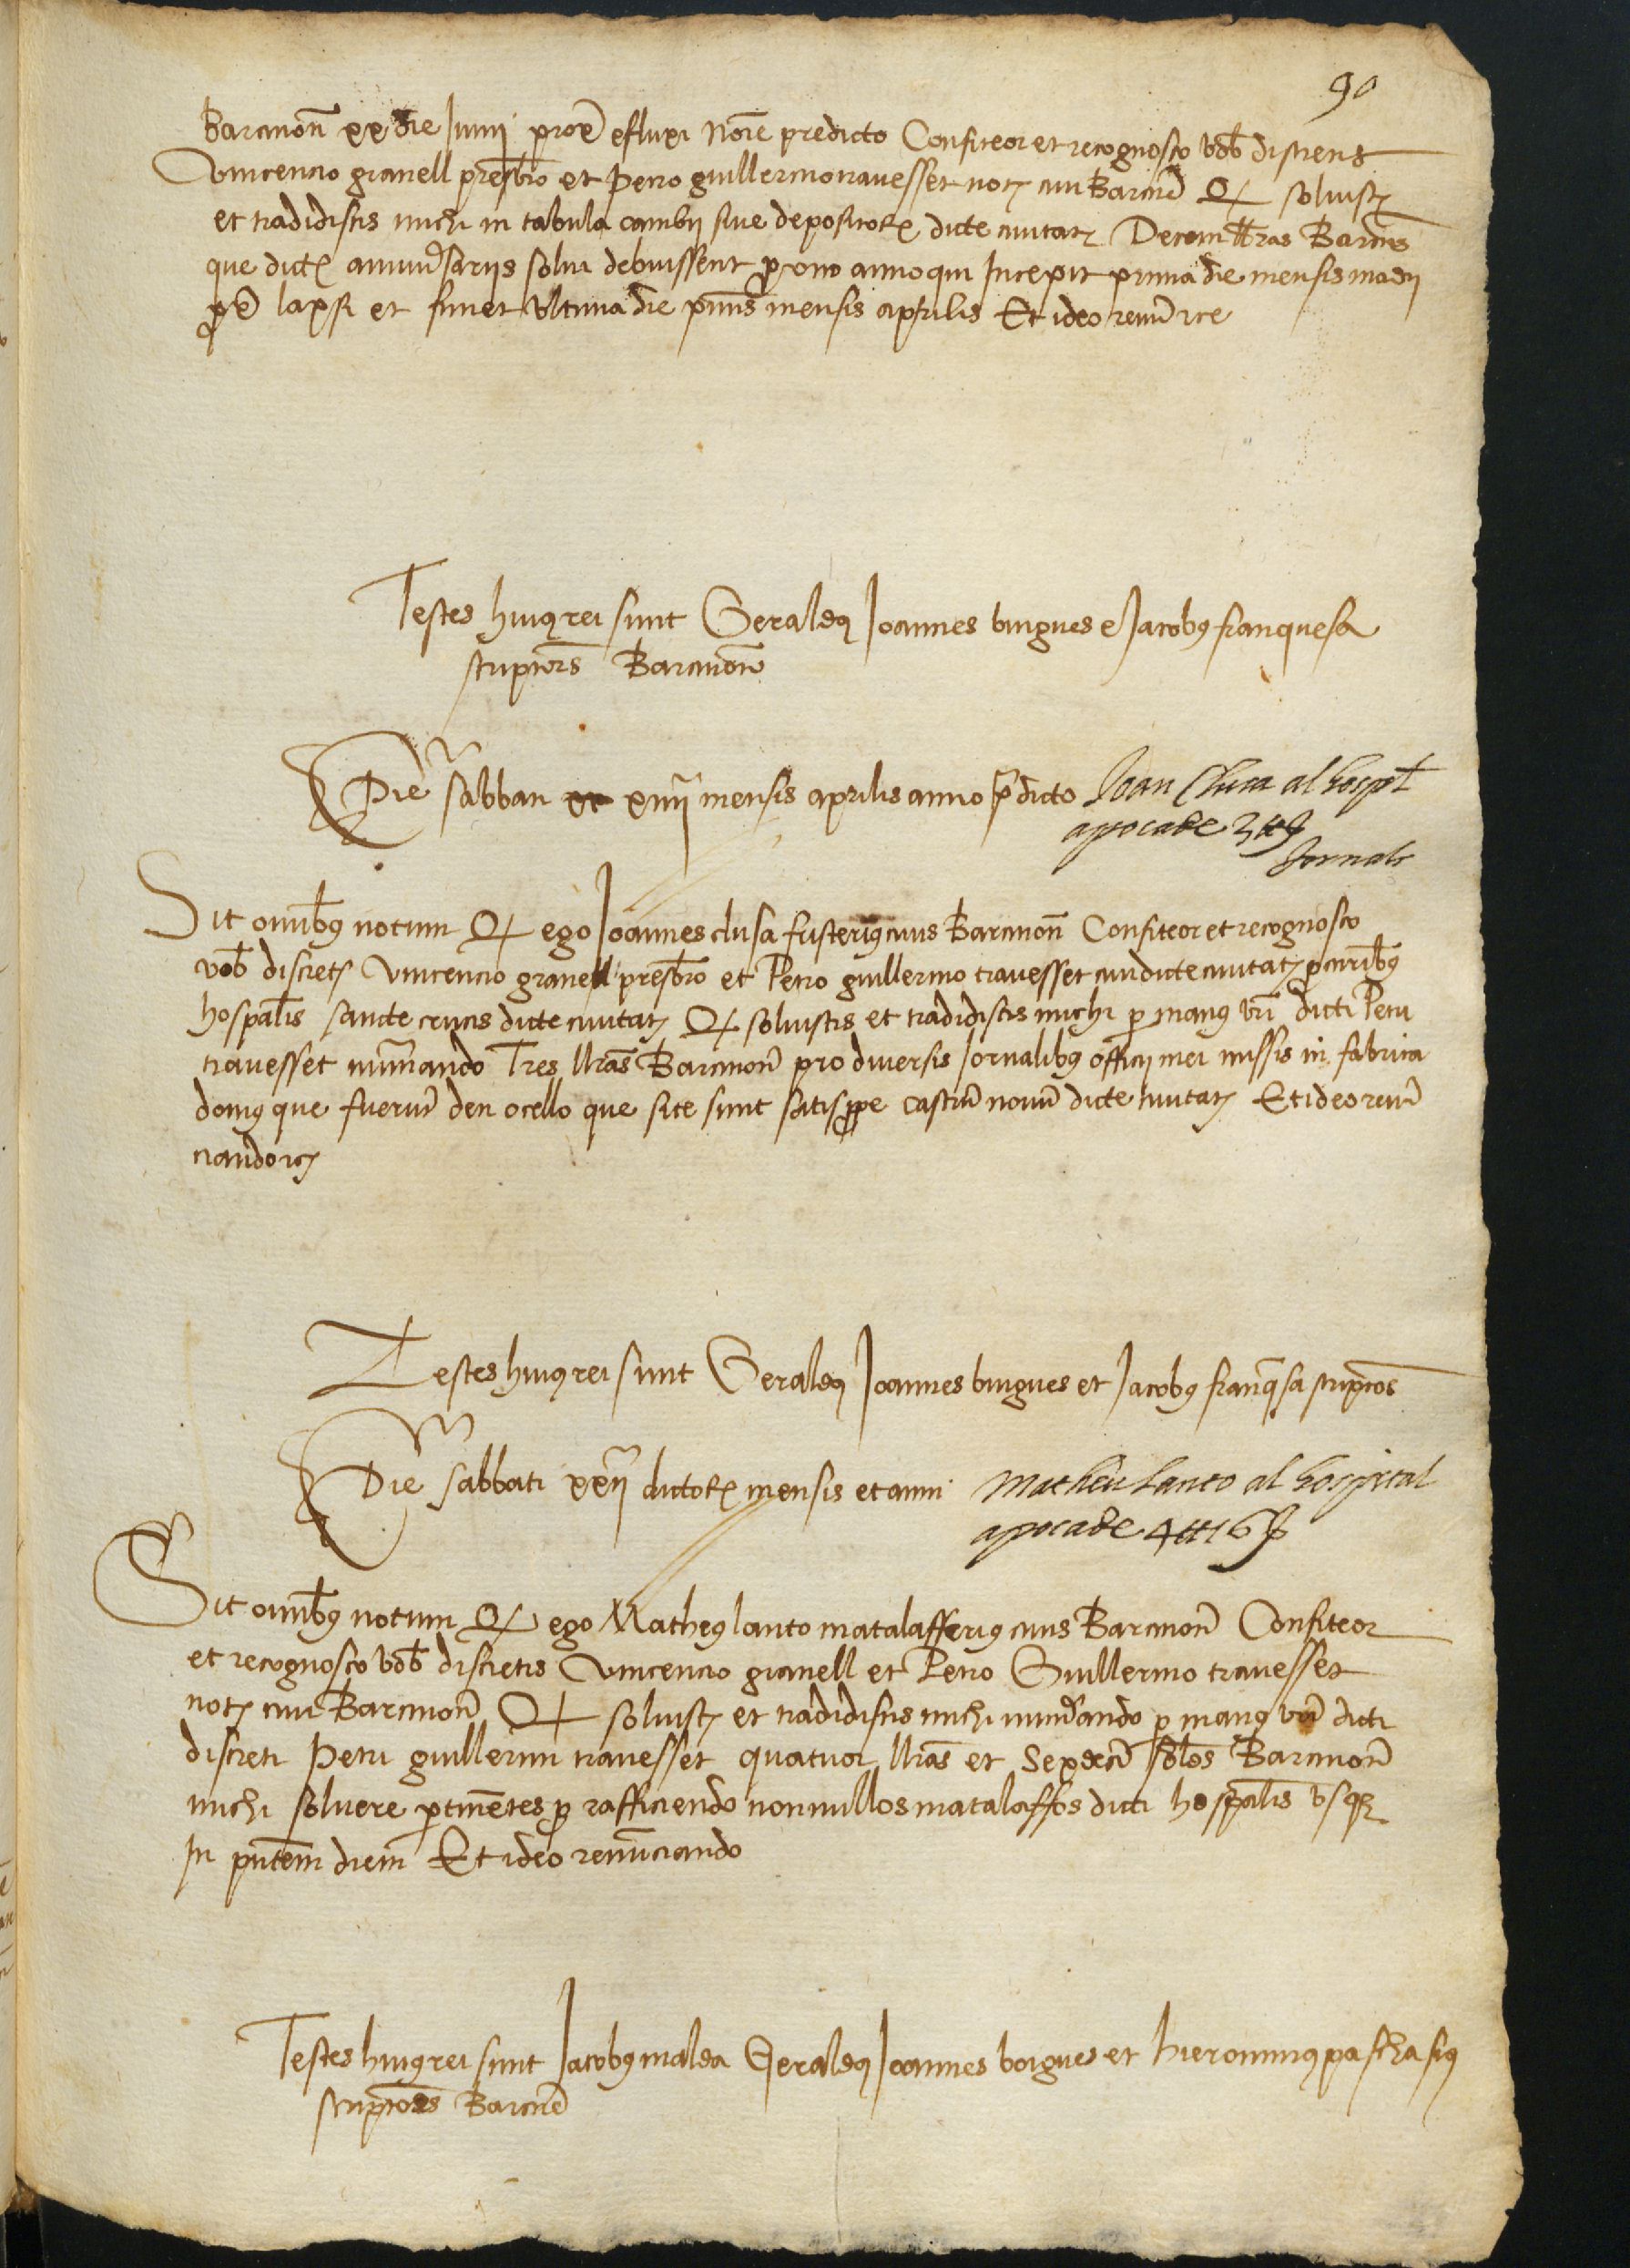 90
Barcinon̄ xx die Junij prox̄e efluxi Nōie predicto Confiteor et recognosco vob̄ discretis
Vincencio granell presb̄ro et Petro guillermo travesset not civi Barcin̄e Q solvist
et tradidistis michi in tabula cambij sive depositor dicte civitat Decem llr̄as Barcn̄es
que dict anniversarijs solvi debuissent pro uno anno qui Incepit prima die mensis madij
prox̄e lapsi et finet Ultima die pn̄tis mensis aprilis Et ideo renun̄ tce
Testes huius rei sunt Geraldus Joannes buigues e Jacobus franquesa
scriptor̄s Barcinon̄e
Die sabbati xiiij mensis aprilis anno p̄dicto
Joan Clusa al hospt̄l
apoca de 3 ll 9
Jornals
Sit omnib̄us notum Q ego Joannes clusa fusterius civis Barcinon̄ Confiteor et recognosco
vob̄ discret Vincencio granell presb̄ro et Petro guillermo travesset civi dicte civitat procurib̄us
hospāl̄is sancte crucis dicte civitat Q solvistis et tradidistis michi per manus vr̄i dicti Petri
travesset num̄ando Tres llr̄as Barcinon̄e pro diversis Jornalibus officij mei missis in fabrica
domus que fuerun̄t den ocello que site sunt satis prope castrum̄ novum̄ dicte civitat Et ideo renun̄
ciando tc
Testes huius rei sunt Geraldus Joannes buigues et Jacobus franq̄sa scriptor̄s
Die sabbati xxij dictor mensis et anni
Matheu lanto al hospital
apoca de 4 ll 16 s
Sit omnib̄us notum Q ego Matheus lanto matalafferius civis Barcinon̄e Confiteor
et recognosco vob̄ discretis Vincencio granell et Petro Guillermo travesset
not civi Barcinon̄e Q solvist et tradidistis michi numerando per manus vr̄i dicti
discreti Petri guillermi travesset quatuor llr̄as et Sexdeci̅ sol̄os Barcinon̄e
michi solvere ptinen̄tes pro rafficiendo nonnullos matalaffos dicti hospāl̄is usq
In pn̄tem diem Et ideo renun̄ciando
Testes huius rei sunt Jacobus malda Geraldus Joannes boigues et hieronimus paschasius
scriptor̄es Barcin̄e